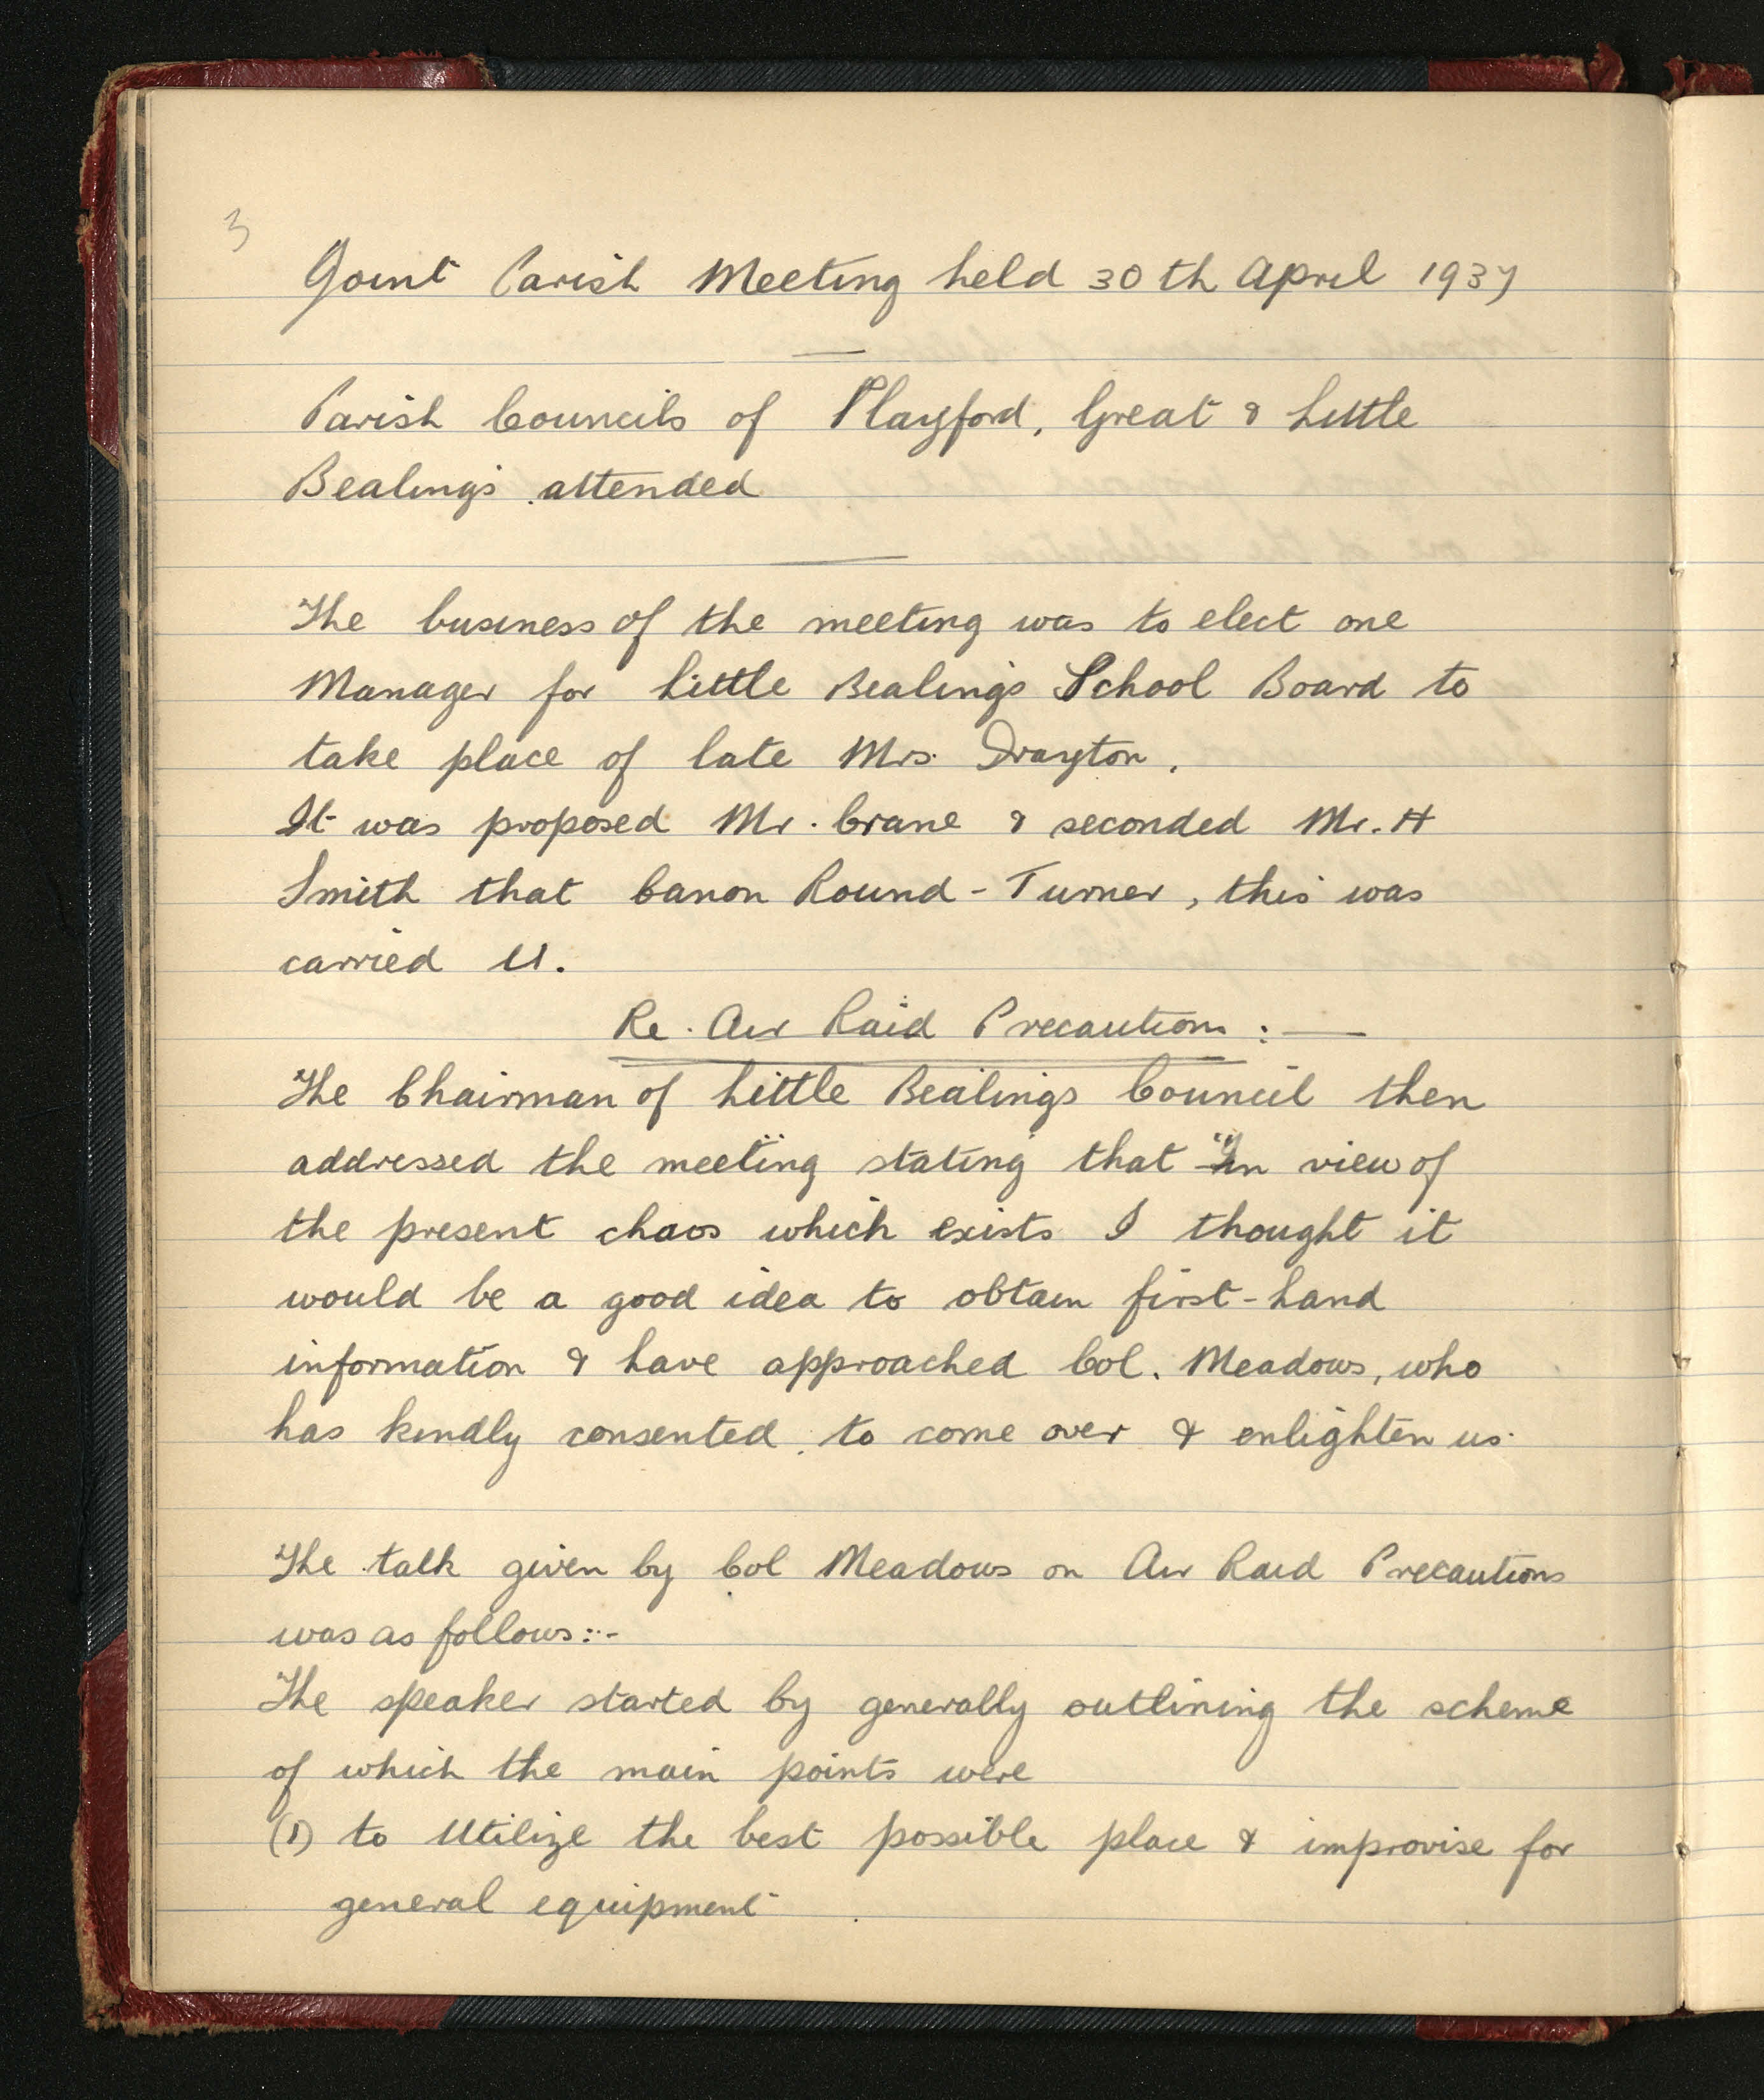 3
Joint Parish Meeting held 30th April 1937
Parish Councils of Playford, Great & Little
Bealings attended
The business of the meeting was to elect one
Manager for Little Bealings School Board to
take place of late Mrs. Drayton.
It was proposed Mr. Crane & seconded Mr. H
Smith that Canon Round-Turner, this was
carried U.
Re. Air Raid Precautions :—
The Chairman of Little Bealings Council then
addressed the meeting stating that "In view of
the present chaos which exists I thought it
would be a good idea to obtain first-hand
information & have approached Col. Meadows, who
has kindly consented to come over & enlighten us.
The talk given by Col Meadows on Air Raid Precautions
was as follows:-
The speaker started by generally outlining the scheme
of which the main points were
(1) to Utilize the best possible place & improvise for
general equipment